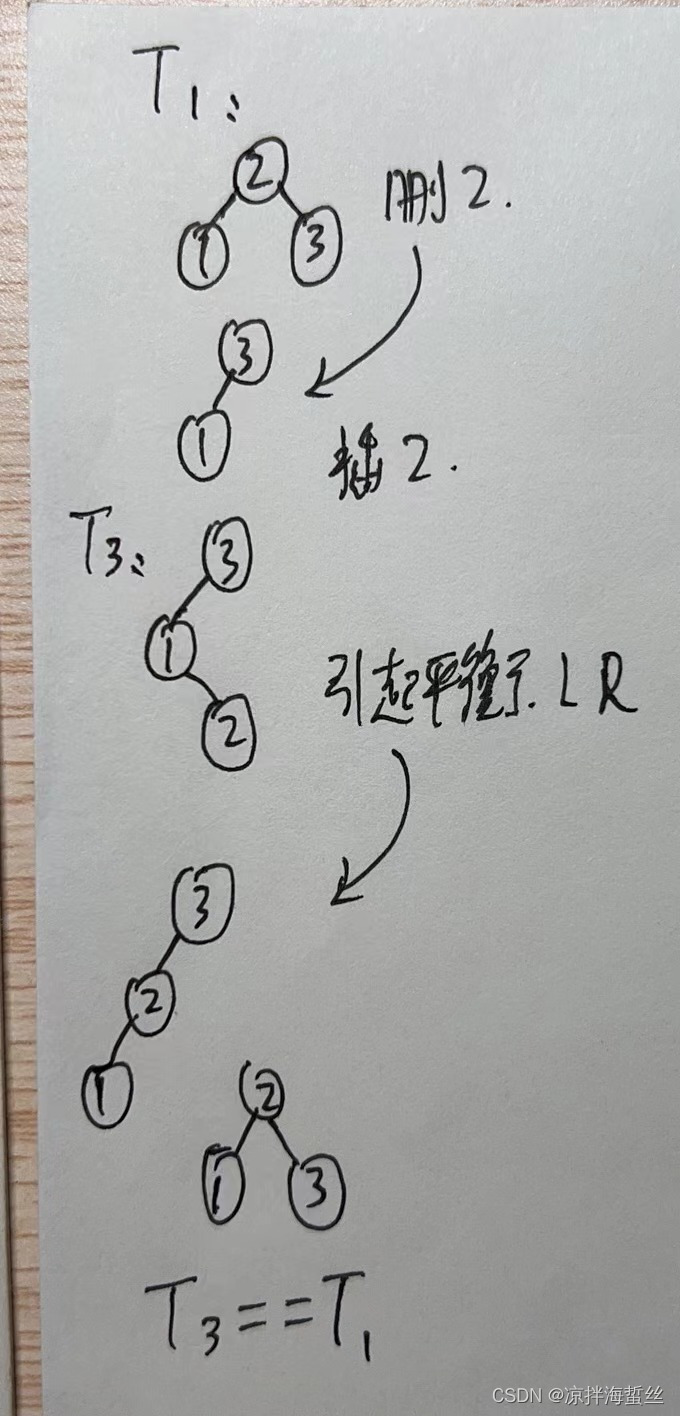 T1:
2
删2.
1 3
3
1
插2.
T3:
3
1
引起平衡了.LR
2
3
2
1
2
1 3
T3==T1
CSDN @凉拌海蜇丝